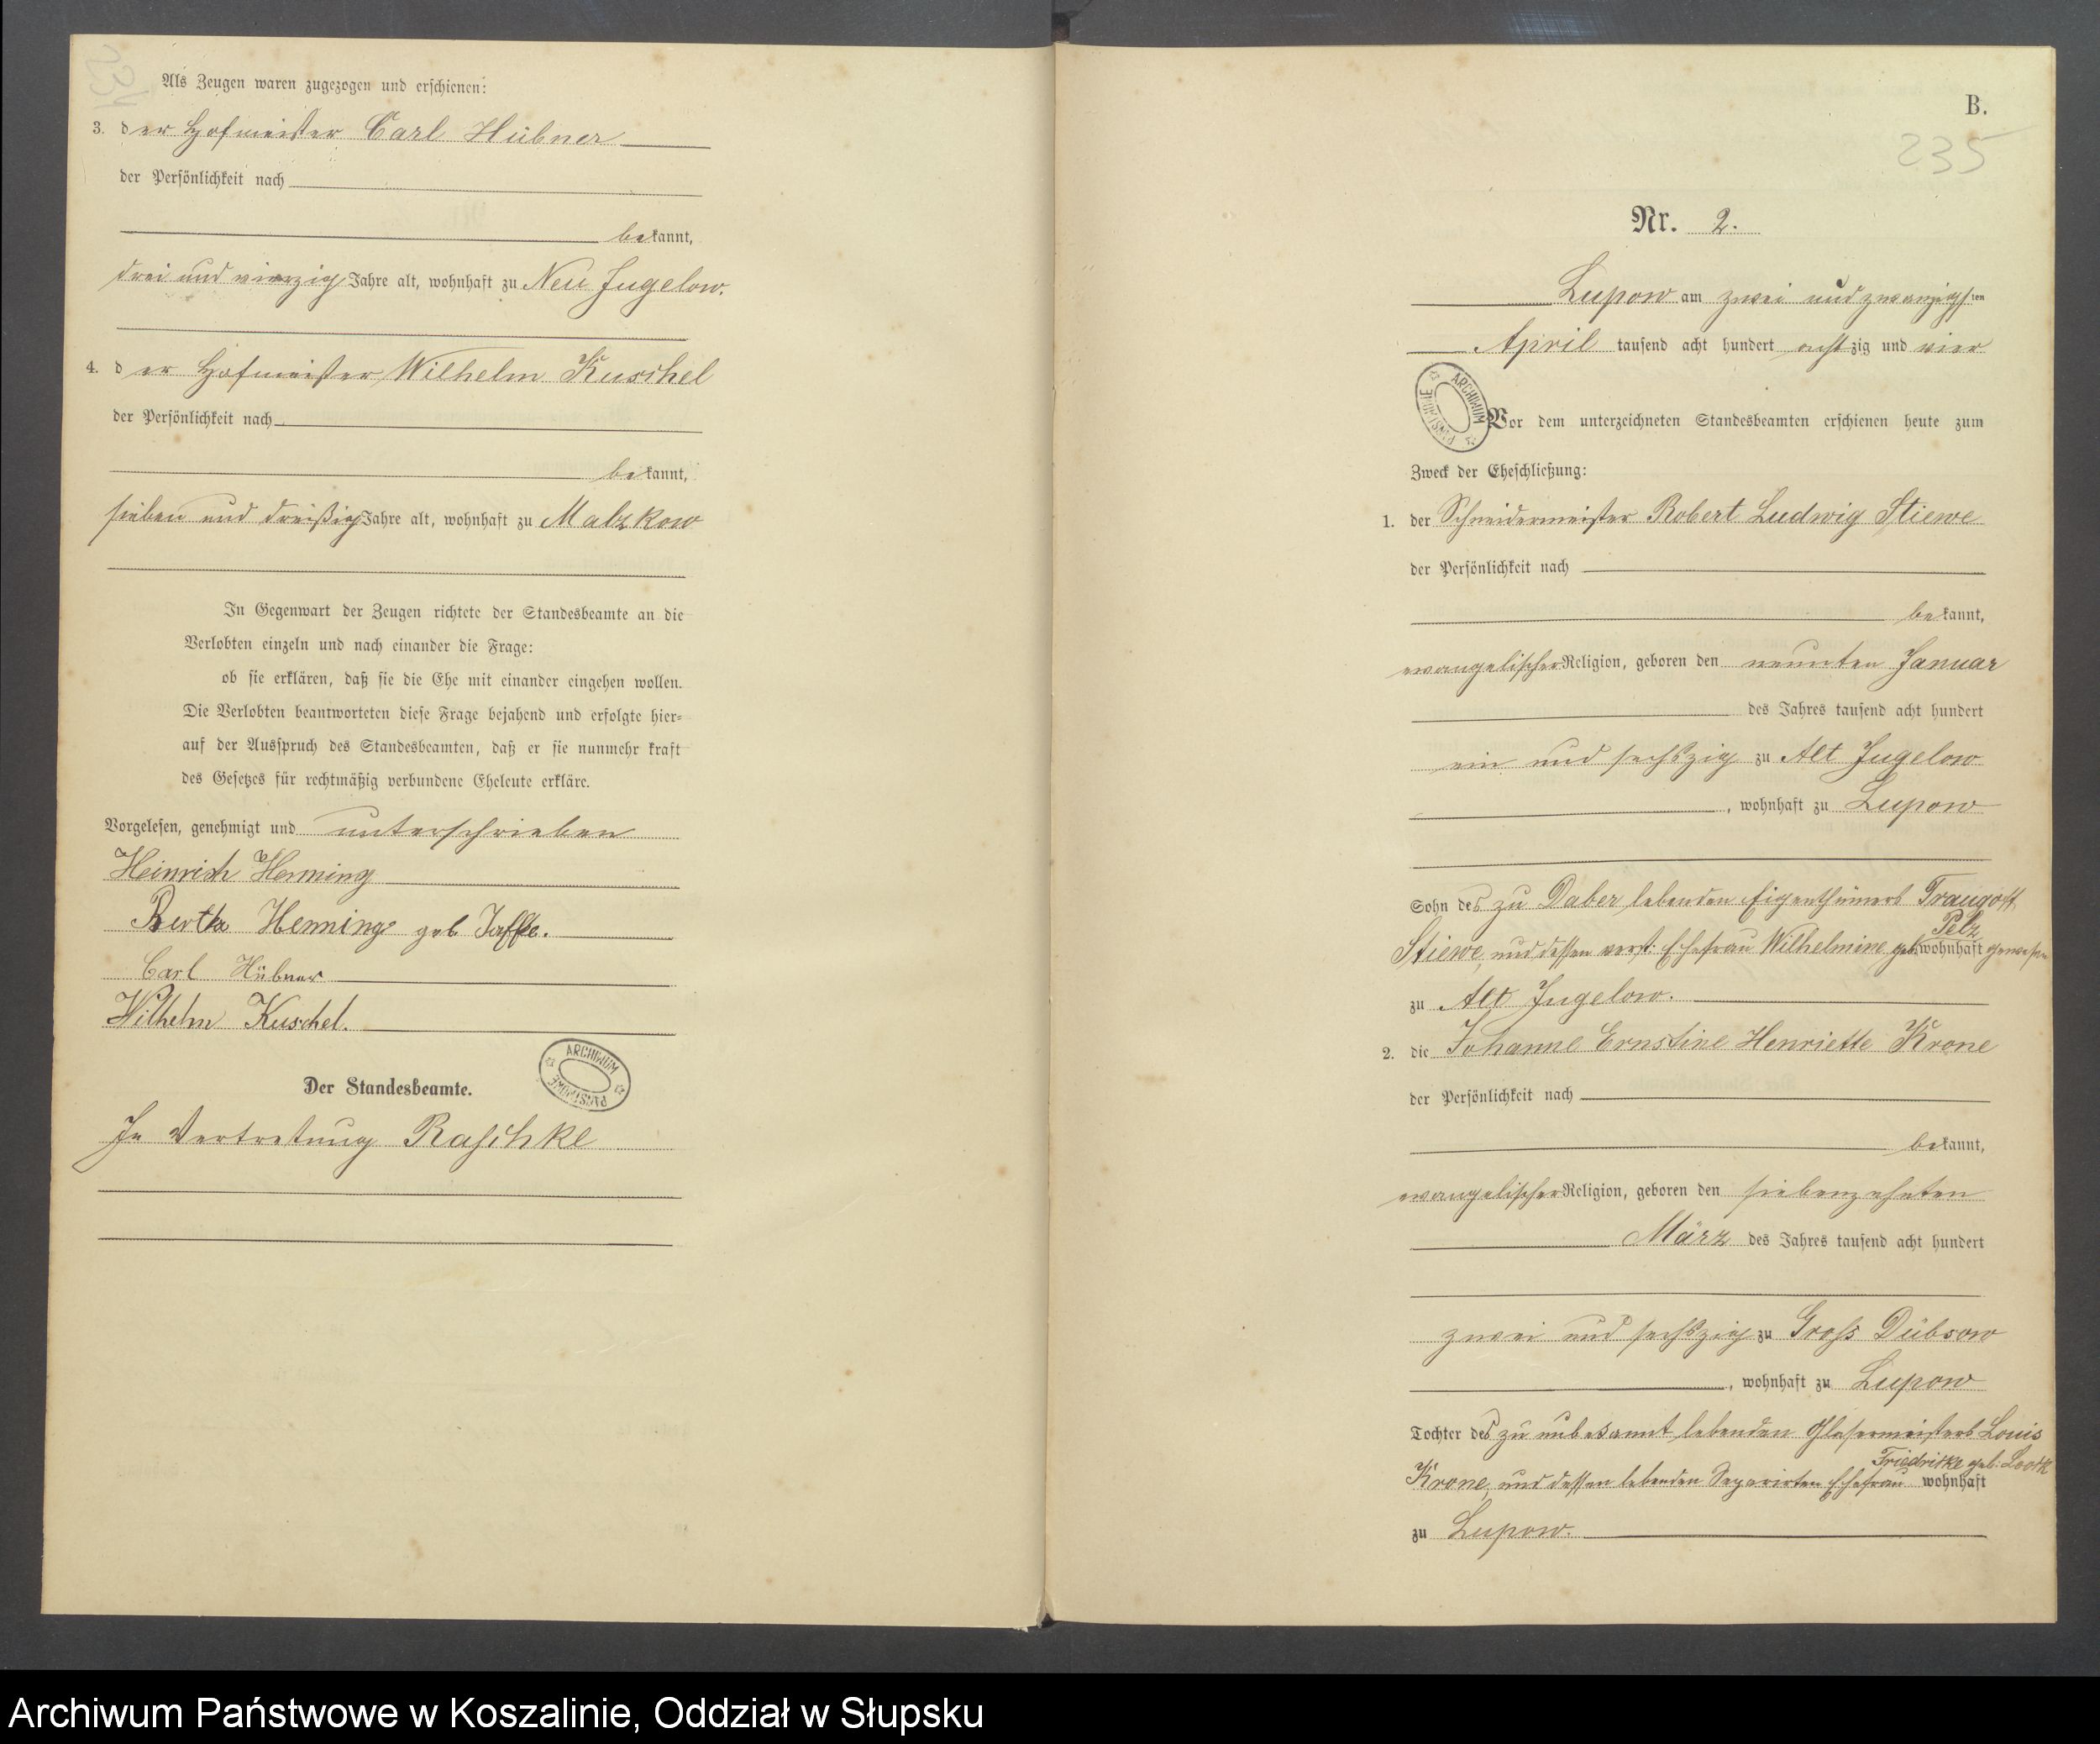 234
Als Zeugen waren zugezogen und erschienen:
3. der Hofmeister Carl Hübner
der Persönlichkeit nach
bekannt,
drei und vierzig Jahre alt, wohnhaft zu Neu Jugelow.
4. der Hofmeister Wilhelm Kuschel
der Persönlichkeit nach
bekannt,
sieben und dreißig Jahre alt, wohnhaft zu Malzkow
In Gegenwart der Zeugen richtete der Standesbeamte an die
Verlobten einzeln und nach einander die Frage:
ob sie erklären, daß sie die Ehe mit einander eingehen wollen.
Die Verlobten beantworteten diese Frage bejahend und erfolgte hier-
auf der Ausspruch des Standesbeamten, daß er sie nunmehr kraft
des Gesetzes für rechtmäßig verbundene Eheleute erkläre.
Vorgelesen, genehmigt und unterschrieben
Heinrich Henning
Bertha Henning geb.
Carl Hübner
Wilhelm Kuschel.
ARCHIWUM PAŃSTWOWE
Der Standesbeamte.
In Vertretung Raschke
B.
235
Nr. 2.
Lupow am zwei und zwanzigsten
April tausend acht hundert achtzig und vier
ARCHIWUM PAŃSTWOWE
Vor dem unterzeichneten Standesbeamten erschienen heute zum
Zweck der Eheschließung:
1. der Schneidermeister Robert Ludwig Stiewe
der Persönlichkeit nach
bekannt,
evangelischer Religion, geboren den neunten Januar
des Jahres tausend acht hundert
ein und sechszig zu Alt Jugelow
, wohnhaft zu Lupow
Sohn des zu Daber lebenden Eigenthümers Traugott
Stiewe, und dessen verst. Ehefrau Wilhelmine geb. Pelz wohnhaft gewesen
zu Alt Jugelow.
2. die Johanne Ernstine Henriette Krone
der Persönlichkeit nach
bekannt,
evangelischer Religion, geboren den siebenzehnten
März des Jahres tausend acht hundert
zwei und sechszig zu Gross Dübsow
, wohnhaft zu Lupow
Tochter des zu unbekannt lebenden Glasermeisters Louis
Krone, und dessen lebenden Separirten Ehefrau Friedrike geb. wohnhaft
zu Lupow.
Archiwum Państwowe w Koszalinie, Oddział w Słupsku